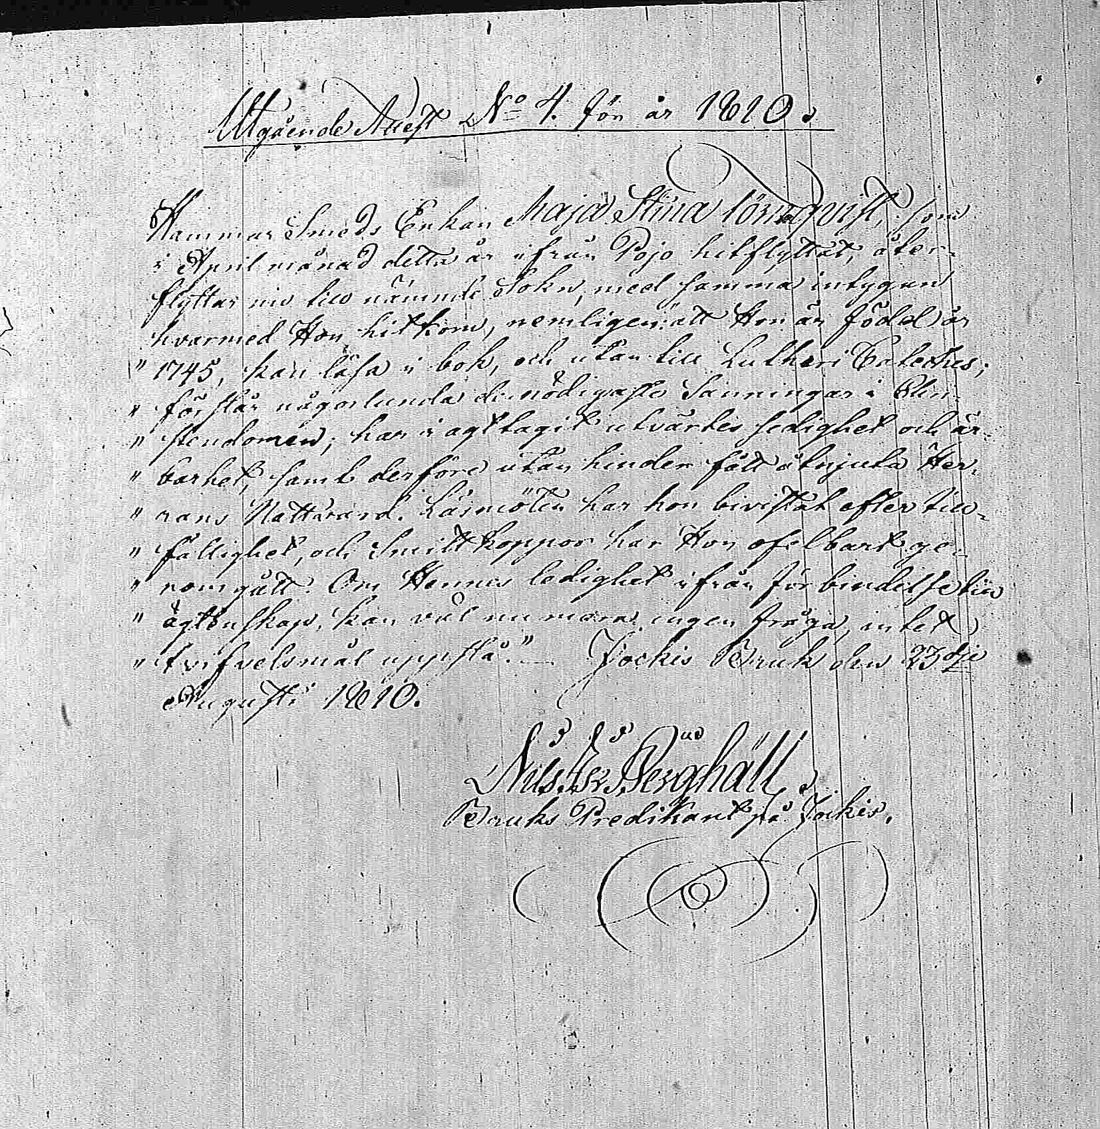 Utgående Attest No 4. för år 1810.
Hammar Smeds Enkan Maja Stina Törnqvist, som
i April månad detta år ifrån Pojo hitflyttat, åter-
flyttar nu till nämnde Sokn, med samma intygan
hvarmed Hon hitkom, nemligen: att Hon är född år
" 1745, kan läsa i bok, och utan till Lutheri Cateches;
" förstår någorlunda de nödigaste Sanningar i Chri-
" stendomen; har i agttagit utvärtes sedighet och är-
" barhet, samt derföre utan hinder fått åtnjuta Her-
" rans Nattvard. Läsmöten har hon bivistat efter till-
" fällighet, och Smittkoppor har Hon ofelbart ge-
" nomgått. Om Hennes ledighet ifrån förbindelse till
" ägtenskap, kan väl nu mera ingen fråga, intet
" tvifvelsmål uppstå." — Jockis Bruk den 23dje
Augusti 1810.
Nils Berghäll
Bruks Predikant på Jockis.